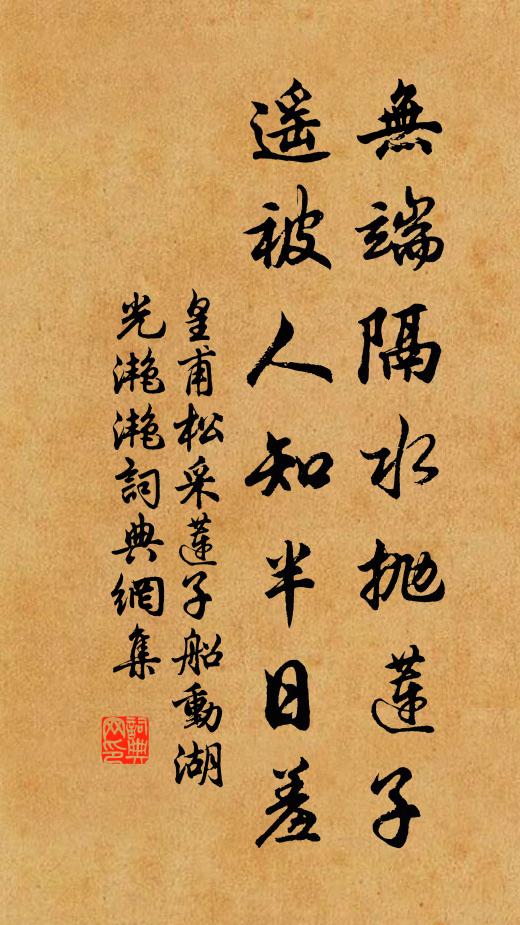 無端隔水拋蓮子
遥被人知半日羞
皇甫松采蓮子船動湖
光灩灩詞典網集
詞典
网印